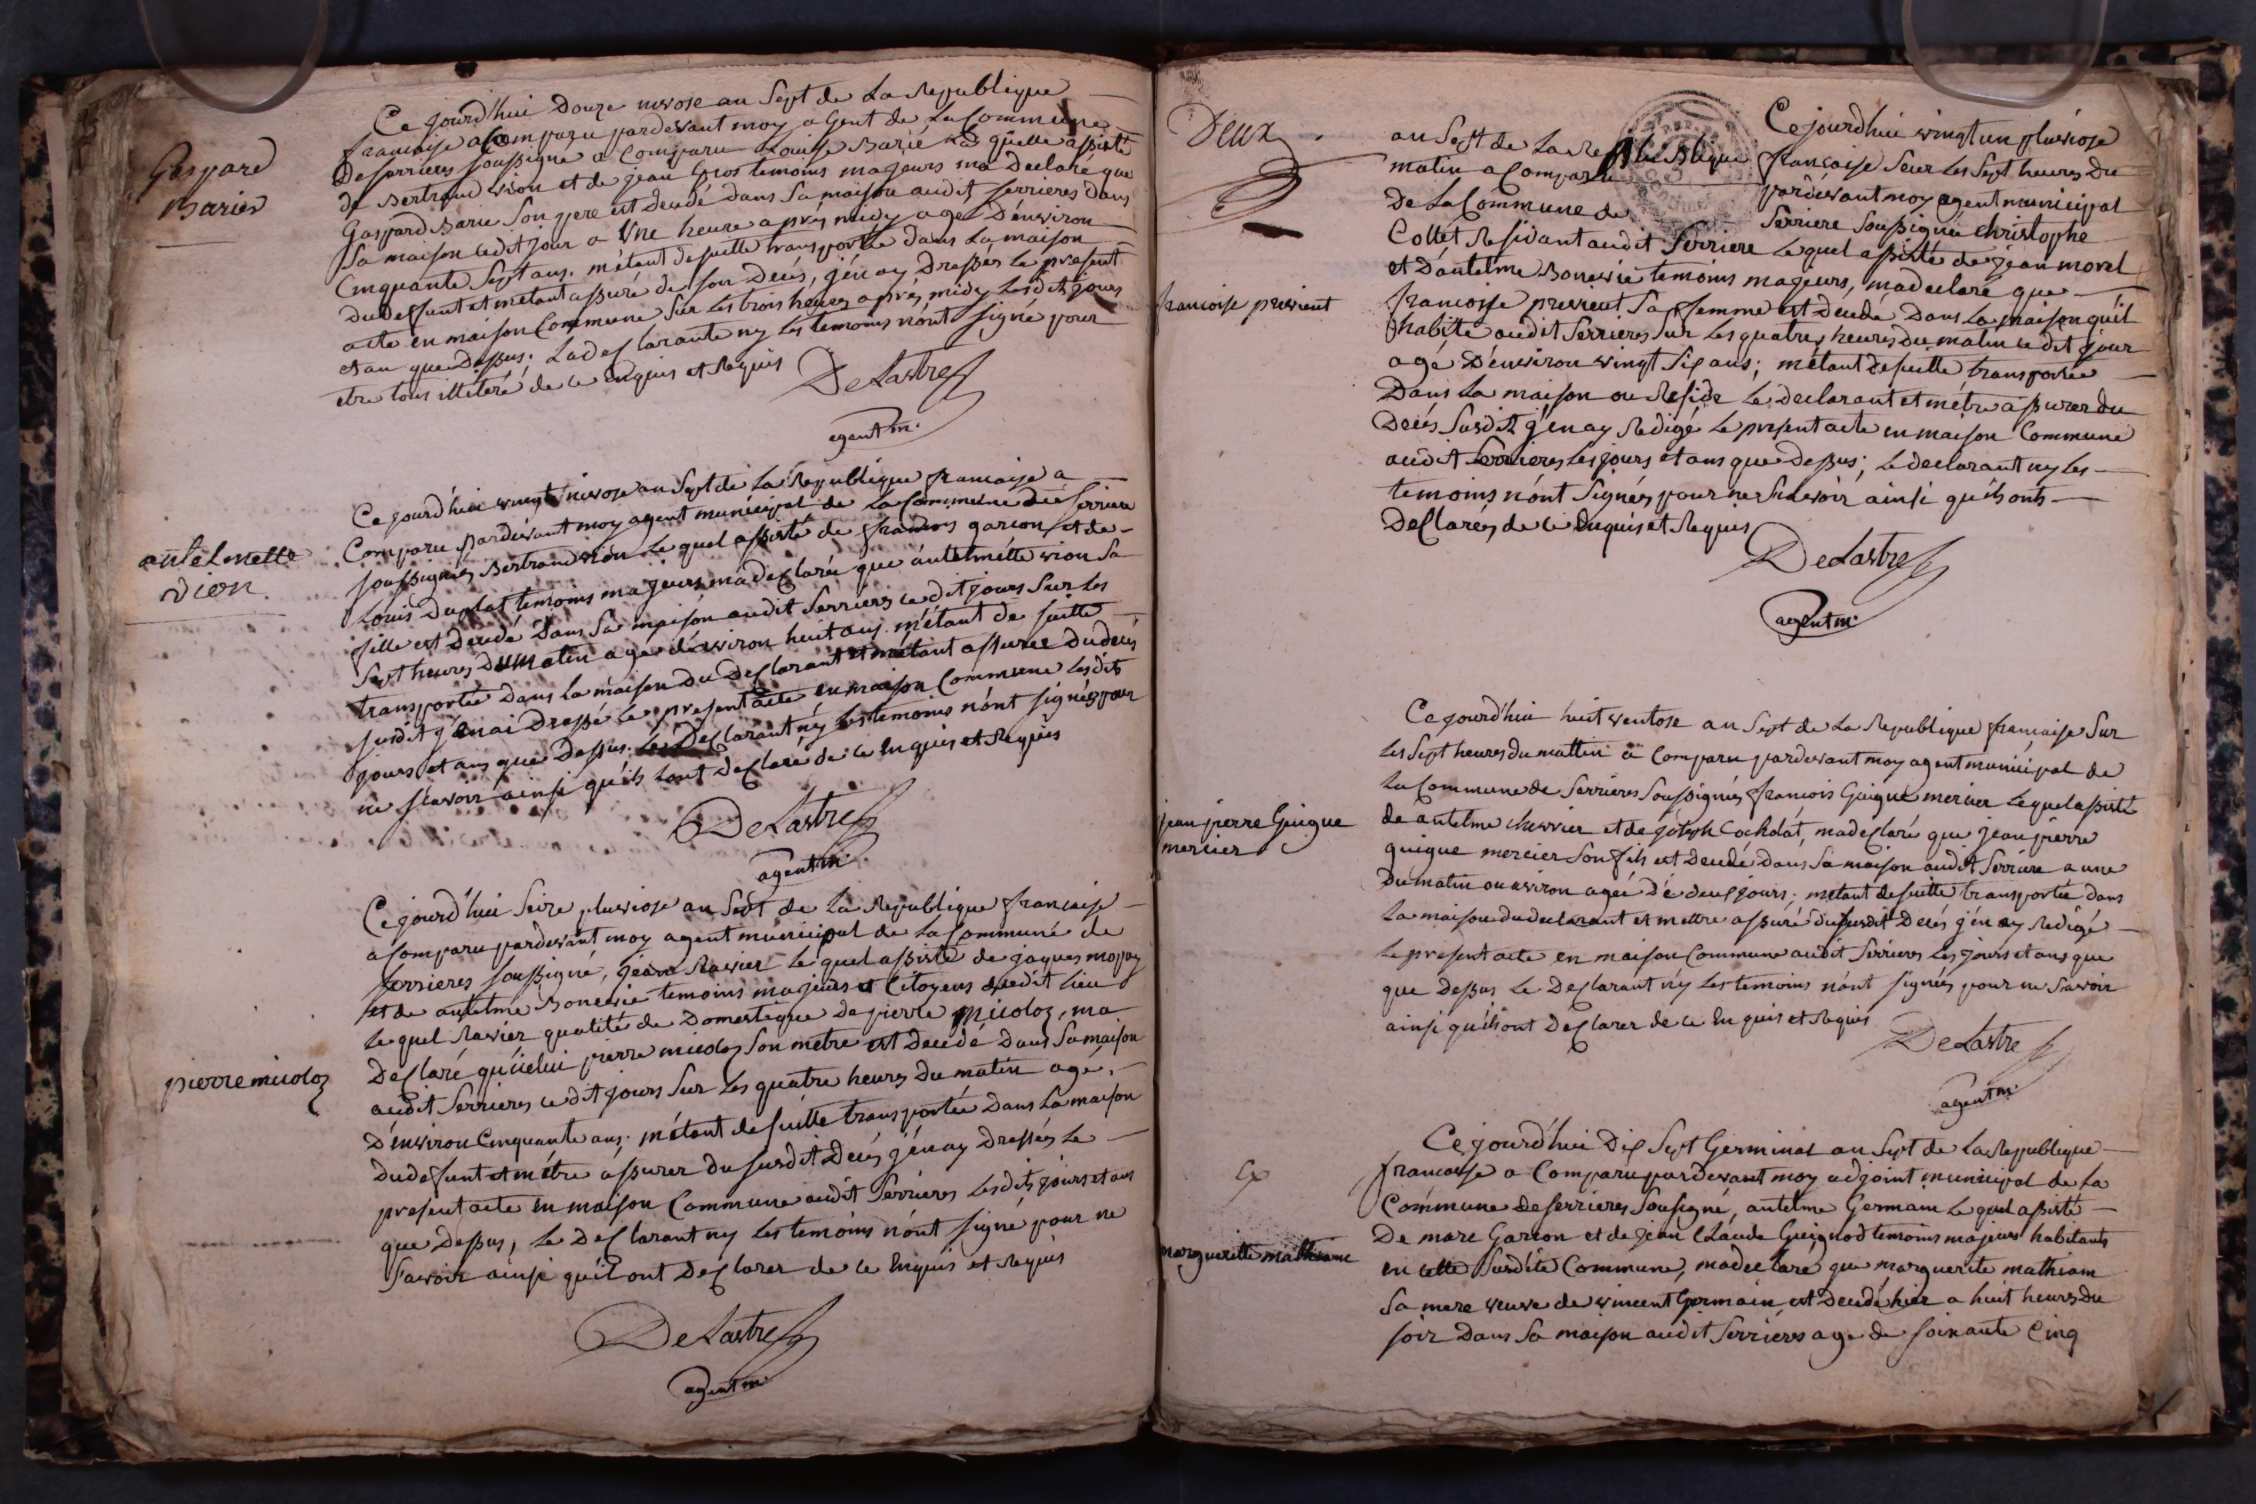 Gaspard
Barier
Ce jourd'hui Douze nivose an Sept de La Republique
francaise a Comparu pardevant moy agent de La Commune
De serrieres soussigné a Comparu Louise Barié la quelle assisté
de Bertrand vion et de jean Gros temoins majeurs ma Declaré que
Gaspard Barie Son pere est decedé dans Sa maison audit serrieres dans
Sa maison cedit jour a Une heure aprés midy agé D'environ
Cinquante Sept ans. m'étant desuitte transportée dans La maison
du deffunt et métant assuré de son Decés, j'én ay Dresser le present
acte en maison Commune Sur Les trois heures aprés midy Lesdits jours
et an que Dessus. La declarante ny Les temoins n'ont signé pour
etre tous illiteré de ce Enquis et Requis
DeLastre
agent m.
antelmette
vion
Ce jourd'hui vingt nivose an Sept de La Republique francaise a
Comparu pardevant moy agent municipal de La Commune de Serriere
soussignés Bertrand vion Le quel assisté de francois garion et de
Louis Duplat temoins majeurs ma declarée que antelmette vion Sa
fille est decedé Dans Sa maison audit Serrieres ce dit jours Sur Les
Sept heures Du matin agé d'environ huit ans. m'étant de suitte
transportée Dans La maison Du Declarant et métant assurée Du decés
susdit j'énai Dressé Le present acte en maison Commune Lesdits
jours et ans que Dessus. Les Declarant ny Les temoins n'ont signés pour
ne scavoir ainsi qu'ils Lont Declaré de ce Enquis et Requis
DeLastre
agent m.
pierre micoloz
Ce jourd'hui Seize pluviose an Sept de La Republique francaise
a Comparu pardevant moy agent municipal de La Commune de
serrieres soussigné, jean Ravier Le quel assisté de jaques
et de antelme Bonewie temoins majeurs et Citoyens dudit Lieu
Le quel Ravier qualité de Domestique De pierre micoloz, ma
Declaré qu'icelui pierre micoloz Son metre est Decedé Dans Sa maison
audit Serrieres ce dit jours Sur Les quatre heures Du matin agé
D'environ Cinquante ans. métant de suitte transportée Dans La maison
du defunt et métre assurer Du susdit Decés j'én ay Dressés Le
present acte en maison Commune audit Serrieres Lesdits jours et ans
que Dessus, Le Declarant ny Les temoins n'ont signé pour ne
Savoir ainsi qu'il ont Declarer de ce Enquis et Requis
DeLastre
agent m.
Deux
Ce jourd'hui vingt un pluviose
an Sept de La Republique francaise Seur Les Sept heures Du
matin a Comparu pardevant moy agent municipal
De La Commune de Serriere Soussigné christophe
Collet Residant audit Serriere Le quel assisté de jean morel
et D'antelme Bonewie temoins majeurs, ma declaré que
francoise previent Sa femme est décédé Dans La maison qu'il
habitte audit Serrieres Sur Les quatres heures du matin ce dit jour
agé D'environ vingt Six ans; métant desuitte transportée
Dans La maison ou Reside Le declarant et métre assurer du
Decés Susdit j'én ay Redigé Le present acte en maison Commune
audit Serrieres Les jours et ans que Dessus; Le declarant ny Les
temoins n'ont Signés pour ne Scavoir ainsi qu'ils ont
Declarés de ce Enquis et Requis
francoise previent
DeLastre
agent m.
jean pierre Guigue
mercier
Ce jourd'hui huit ventose an Sept de La Republique francaise Sur
Les Sept heures du mattin a Comparu pardevant moy agent municipal de
La Commune de Serrieres Soussignés francois Guigue mercier Le quel assisté
de antelme chervier et de joseph Cochdat, ma declaré que jean pierre
guigue mercier Son fils est Decedé Dans Sa maison audit Serriere a une
Du matin ou environ agée dé deux jours; métant desuitte transportée dans
La maison du declarant et mettre assuré du susdit Decés j'én ay Redigé
Le present acte en maison Commune audit Serrieres Les jours et ans que
que Dessus Le Declarant n'y Les temoins n'ont signés pour ne Savoir
ainsi qu'ils ont Declarer de ce Enquis et Requis
DeLastre
agent m.
marguerite mathiam
Ce jourd'hui Dix Sept Germinal an Sept de La Republique
francaise a Comparu pardevant moy adjoint municipal de La
Commune de serrieres Sousigné, antelme Germain Le quel assisté
De marc Garion et de jean Claude Guignod temoins majeurs habitants
en cette Susdite Commune, ma declaré que marguerite mathiam
Sa mere veuve de vincent Germain est Decedé hier a huit heures du
soir Dans Sa maison audit Serriéres age de soixante Cinq